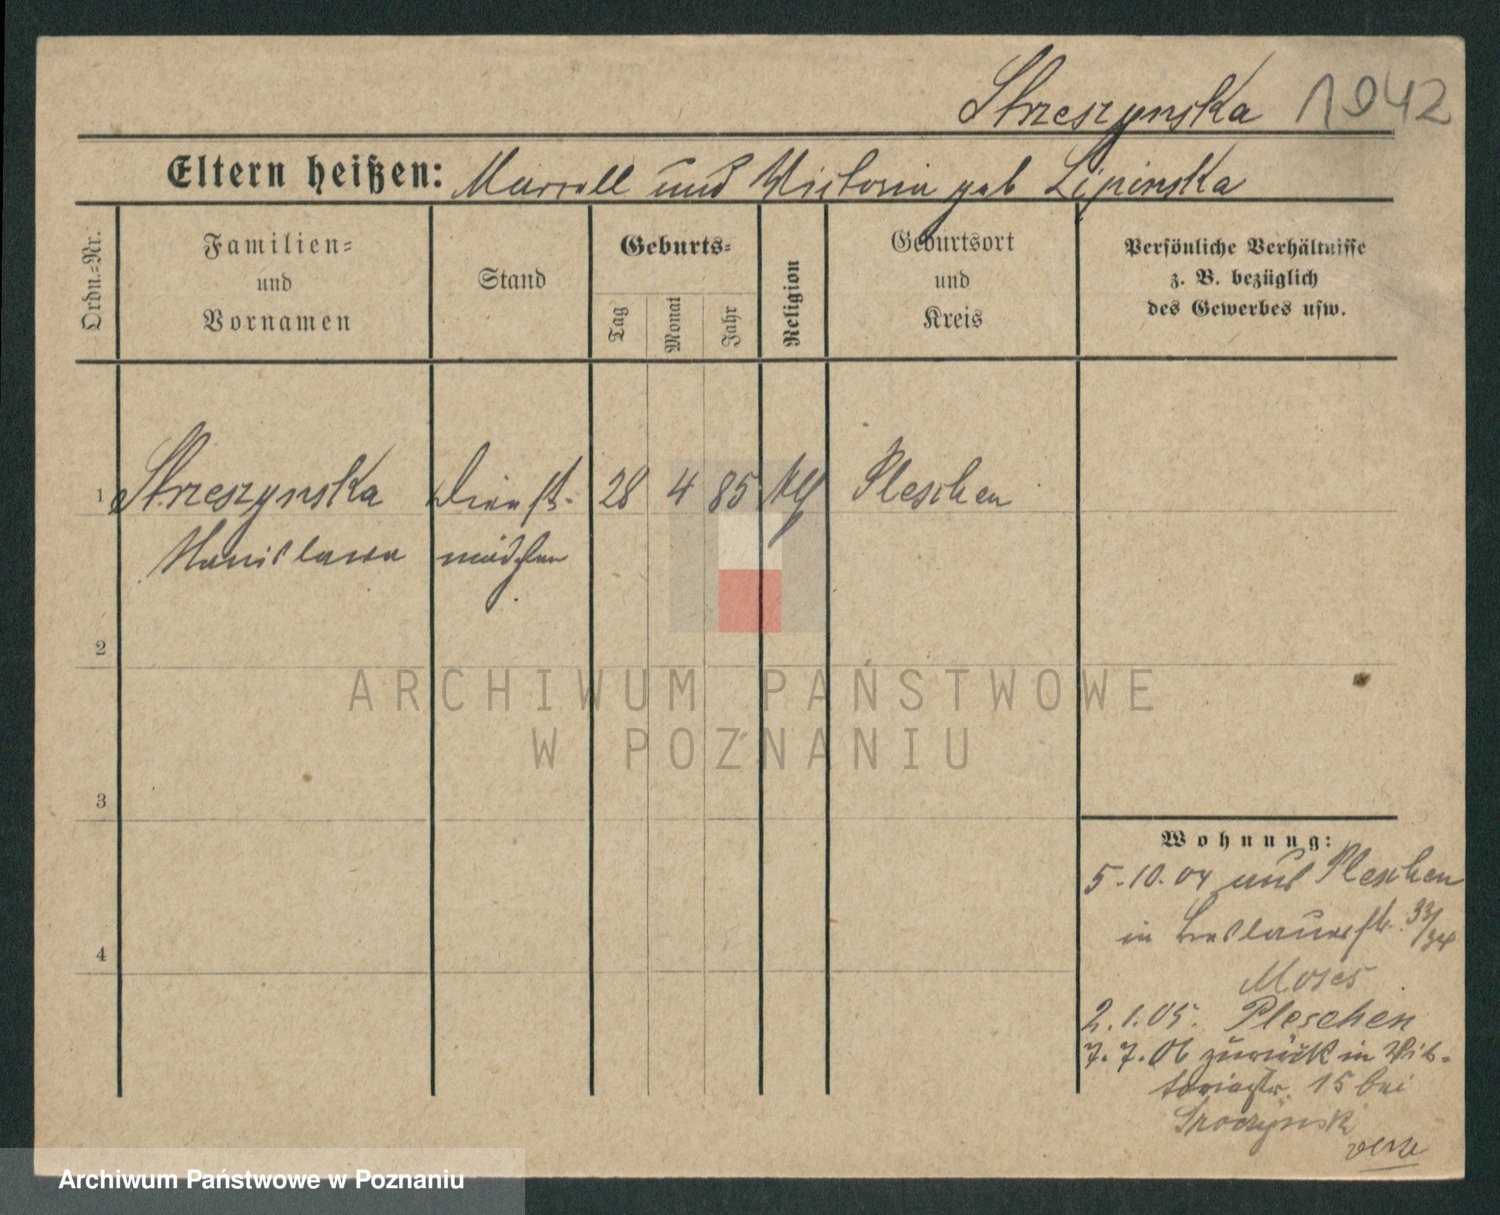 Strzeszynska 1942
Eltern heißen: Marcell und Victoria geb Lipinska
Ordn.-Nr.
Familien-
und
Vornamen
Stand
Geburts-
Tag
Monat
Jahr
Religion
Geburtsort
und
Kreis
Persönliche Verhältnisse
z. B. bezüglich
des Gewerbes usw.
1 Strzeszynska Dienst- 28 4 85 Pleschen
Stanislawa mädchen
2
3
4
Wohnung:
5.10.04 aus Pleschen
in Breslauerstr. 33/34
Moses
2.1.05. Pleschen
7.7.06 zurück in Vik-
toriastr. 15 bei
ARCHIWUM PAŃSTWOWE
W POZNANIU
Archiwum Państwowe w Poznaniu